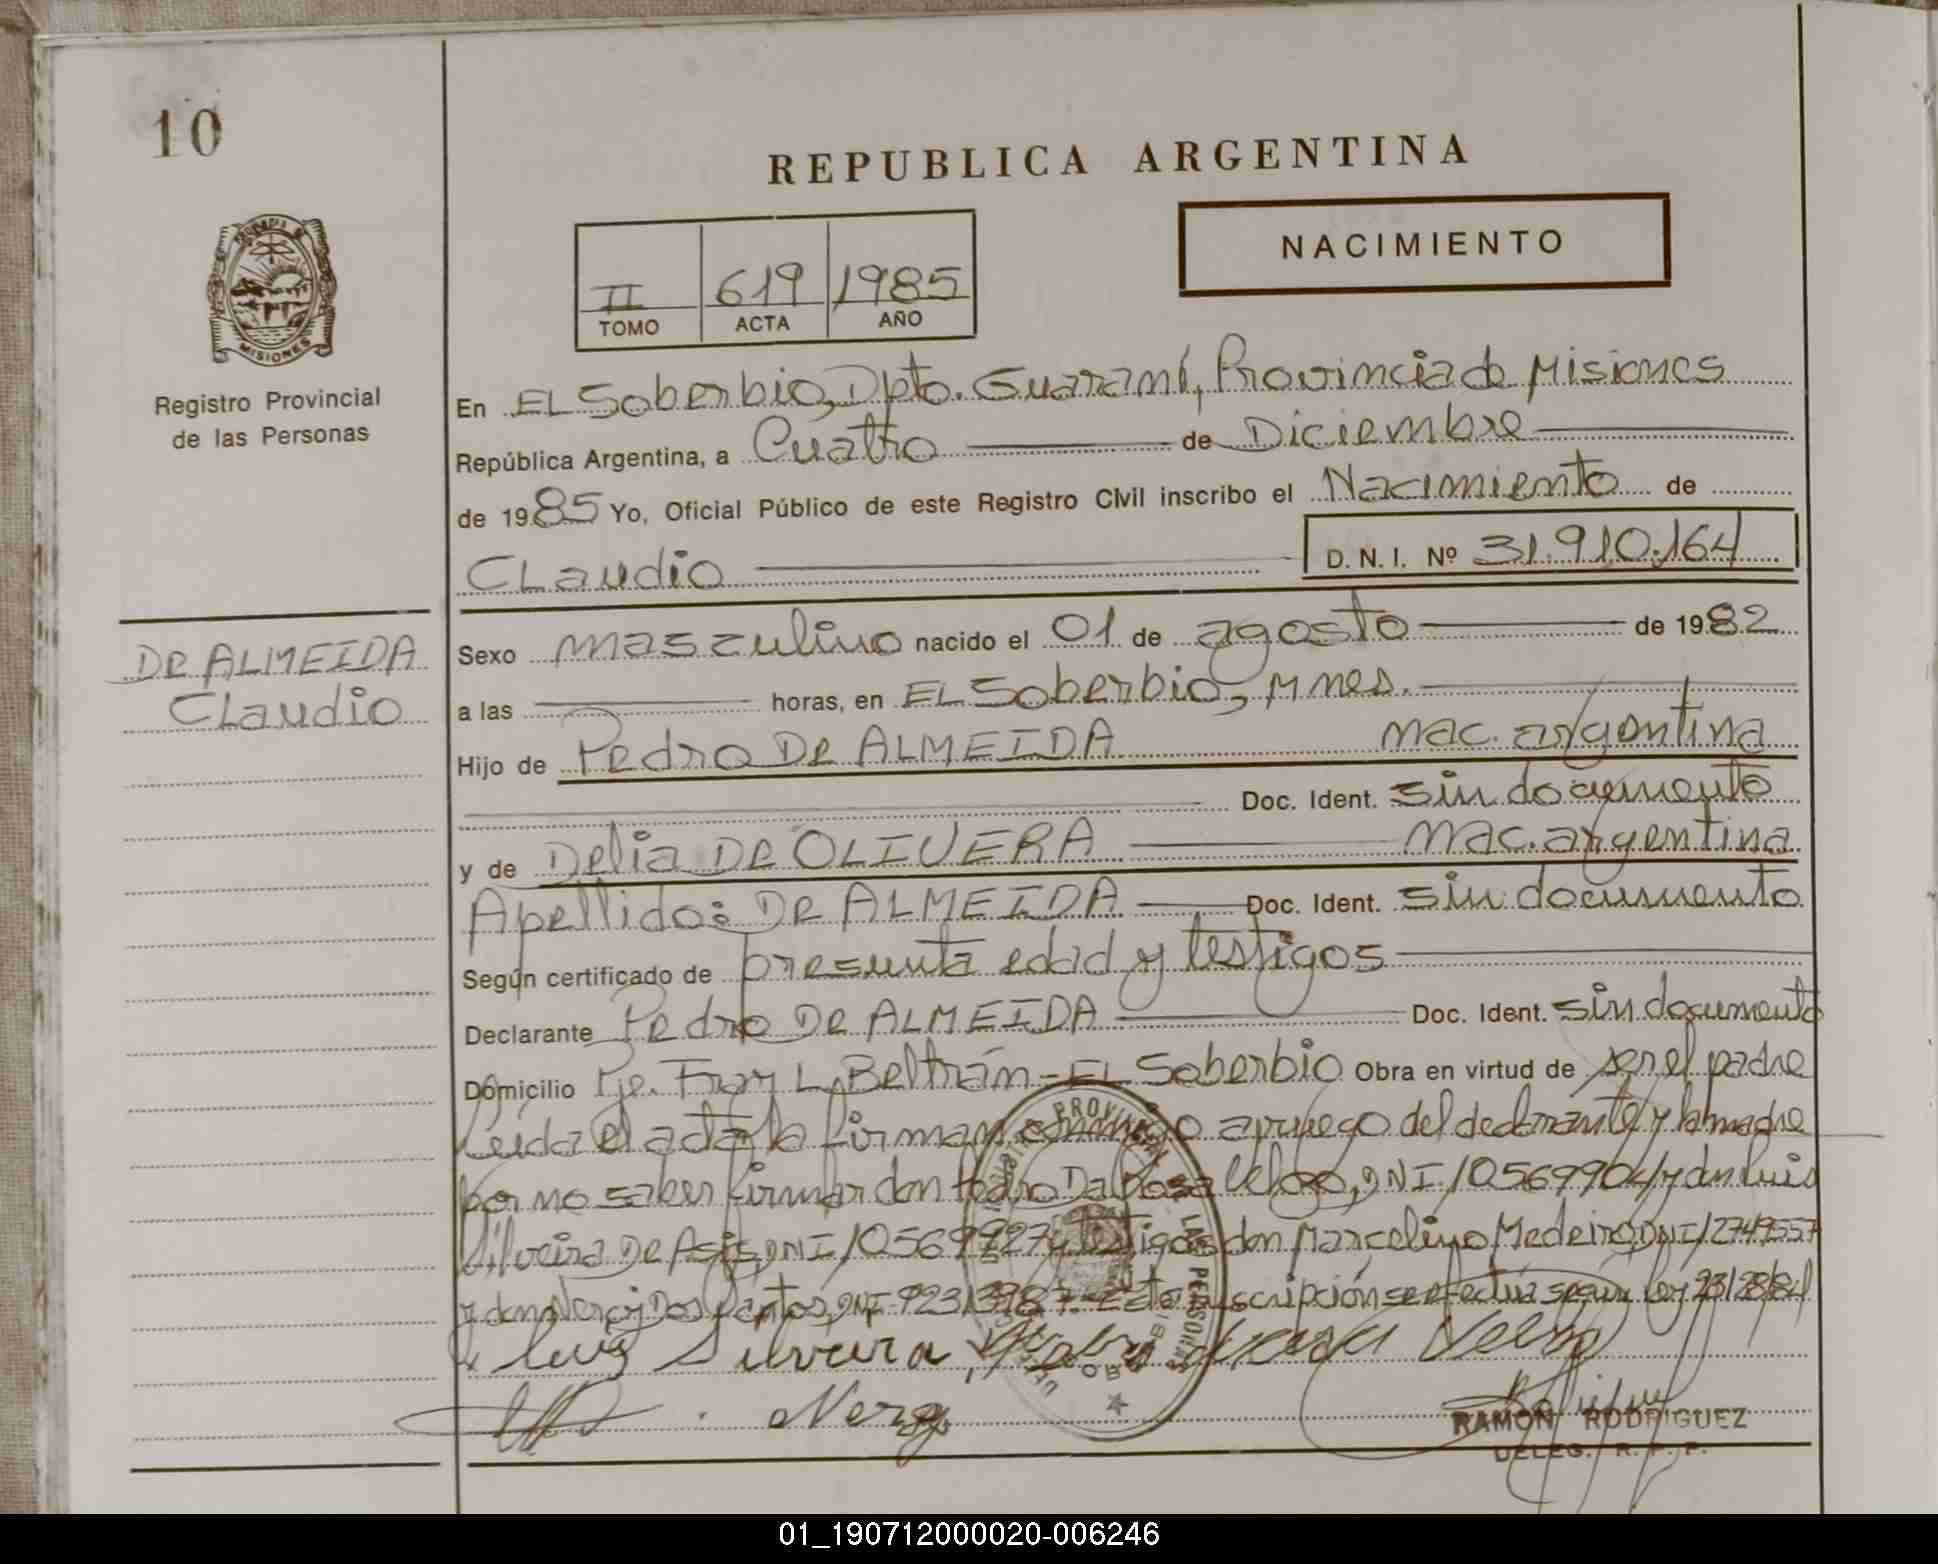 10
REPUBLICA ARGENTINA
NACIMIENTO
II 619 1985
TOMO ACTA AÑO
MISIONES
Registro Provincial
de las Personas
En EL Soberbio, Dpto. Guaraní, Provincia de Misiones
República Argentina, a Cuatro de Diciembre
de 1985 Yo, Oficial Público de este Registro Civil inscribo el Nacimiento de
CLaudio D. N. I. Nº 31.910.164
DE ALMEIDA
CLaudio
Sexo masculino nacido el 01 de agosto de 1982
a las horas, en EL Soberbio, Mnes.
Hijo de Pedro DE ALMEIDA nac. argentina
Doc. Ident. sin documento
y de Delia DE OLIVERA nac. argentina
Apellido: DE ALMEIDA Doc. Ident. sin documento
Según certificado de presunta edad y testigos
Declarante Pedro DE ALMEIDA Doc. Ident. sin documento
Domicilio Pje. Fray L. Beltrán - EL Soberbio Obra en virtud de ser el padre
Leida el acta la firman conmigo a ruego del declarante y la madre
por no saber firmar don Pedro Da Rosa Veloso, DNI 10569904 y don Luis
Silveira De Asis, DNI 10569927 y testigos don Marcelino Medeiro, DNI 12749557
y don Nercy Dos Santos, DNI Esta inscripción se efectúa según ley 23128/84
Luis Silveira
Nercy
RAMON RODRIGUEZ
DELEG. R. P. P.
01_190712000020-006246